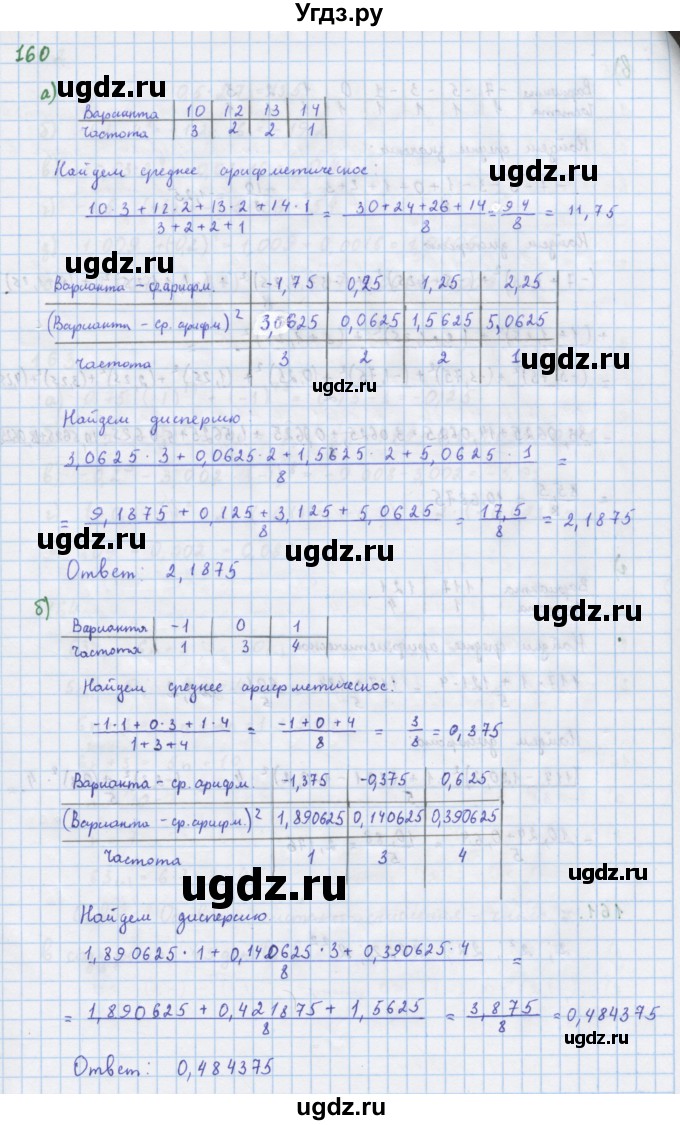 Угдз.ру
160
ugdz.ru
ugdz.ru
а)
Варианта 10 12 13 14
Частота 3 2 2 1
Найдем среднее арифметическое:
10·3+12·2+13·2+14·1 / 3+2+2+1 = 30+24+26+14 / 8 = 94 / 8 = 11,75
ugdz.ru
ugdz.ru
Варианта - ф.арифм. -1,75 0,25 1,25 2,25
(Варианта - ср.арифм)² 3,0625 0,0625 1,5625 5,0625
Частота 3 2 2 1
ugdz.ru
ugdz.ru
Найдем дисперсию:
3,0625·3+0,0625·2+1,5625·2+5,0625·1 / 8 =
= 9,1875+0,125+3,125+5,0625 / 8 = 17,5 / 8 = 2,1875
ugdz.ru
ugdz.ru
Ответ: 2,1875
ugdz.ru
б)
Варианта -1 0 1
Частота 1 3 4
Найдем среднее арифметическое:
ugdz.ru
-1·1+0·3+1·4 / 1+3+4 = -1+0+4 / 8 = 3 / 8 = 0,375
ugdz.ru
Варианта - ср.арифм. -1,375 -0,375 0,625
(Варианта - ср.арифм.)² 1,890625 0,140625 0,390625
Частота 1 3 4
ugdz.ru
ugdz.ru
Найдем дисперсию
1,890625·1+0,140625·3+0,390625·4 / 8 =
= 1,890625+0,421875+1,5625 / 8 = 3,875 / 8 = 0,484375
ugdz.ru
Ответ: 0,484375
ugdz.ru